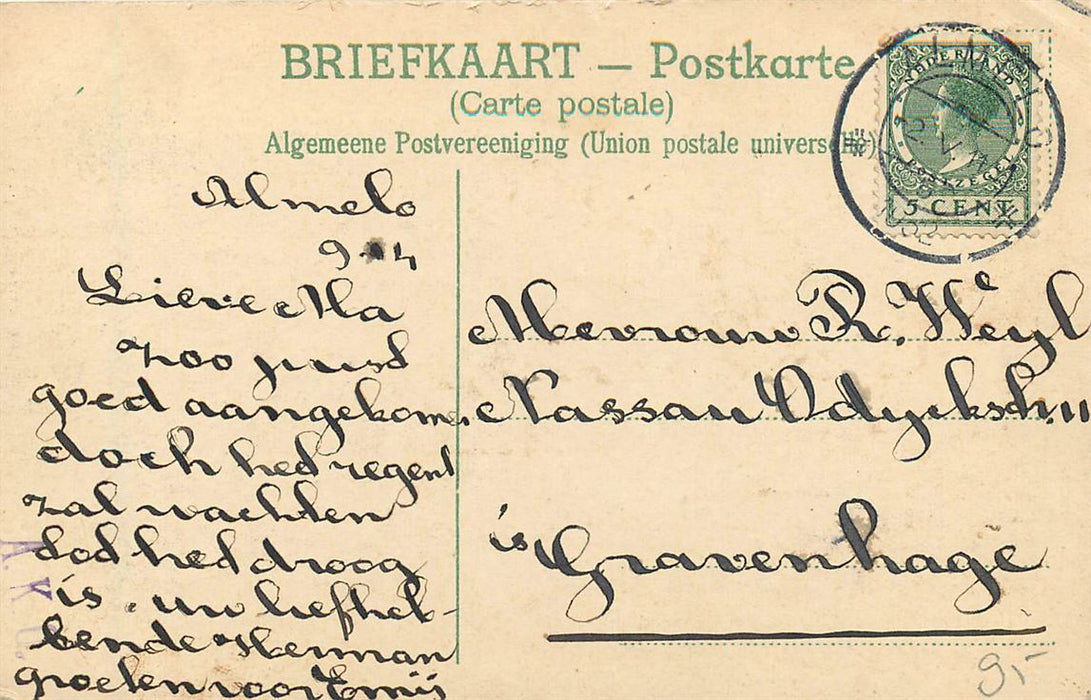 BRIEFKAART — Postkarte
(Carte postale)
Algemeene Postvereeniging (Union postale universelle)
NEDERLAND
POSTZEGEL
5 CENT
Almelo
9-4
Lieve Ma
zoo juist
goed aangekomen
doch het regent
zal wachten
tot het droog
is. uw liefheb-
bende Herman
groeten voor Emij
Mevrouw R. Weyl
Nassau Odyckstr. 11
is Gravenhage
A K
9,-